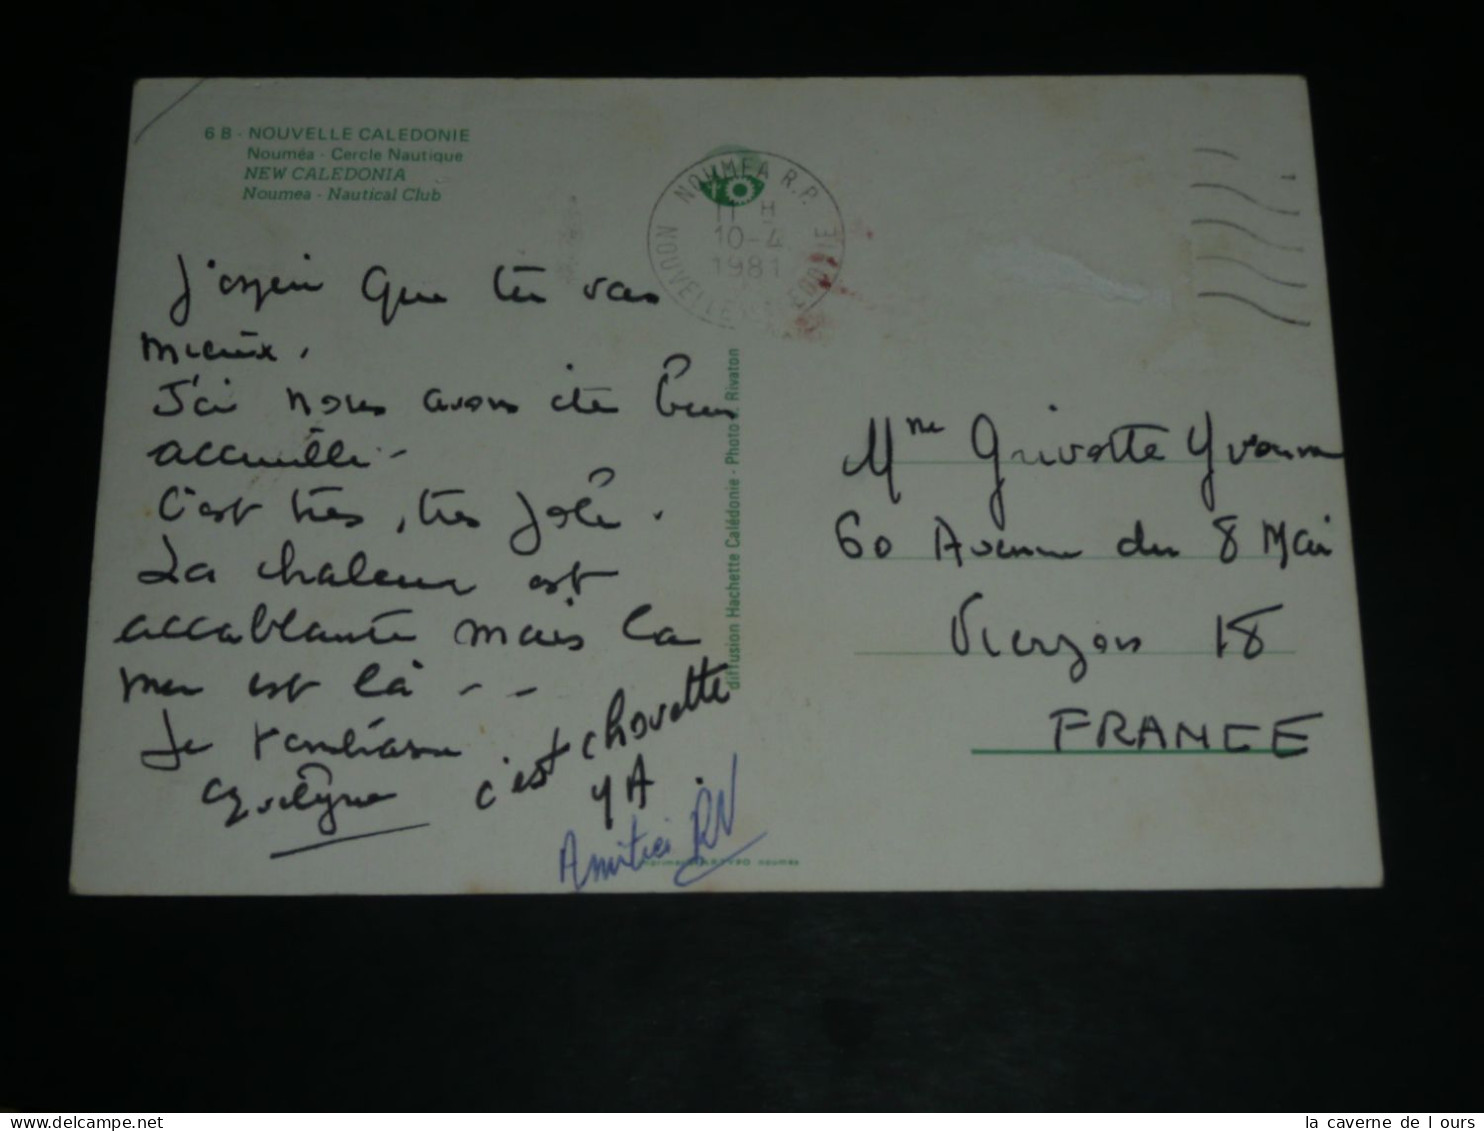 6 B - NOUVELLE CALEDONIE
Nouméa - Cercle Nautique
NEW CALEDONIA
Noumea - Nautical Club
NOUMEA R.P.
11 H
10-4
1981
NOUVELLE CALEDONIE
J'espère que tu vas
mieux.
J'ai nous avons été bien
accueilli -
C'est très, très joli.
La chaleur est
accablante mais la
mer est là - -
Je t'embrasse
Evelyne
c'est chouette
YA
Amitiés RV
diffusion Hachette Calédonie - Photo Rivaton
Mme Grivotte Yvonne
60 Avenue du 8 Mai
Vierzon 18
FRANCE
nouméa
la caverne de l ours